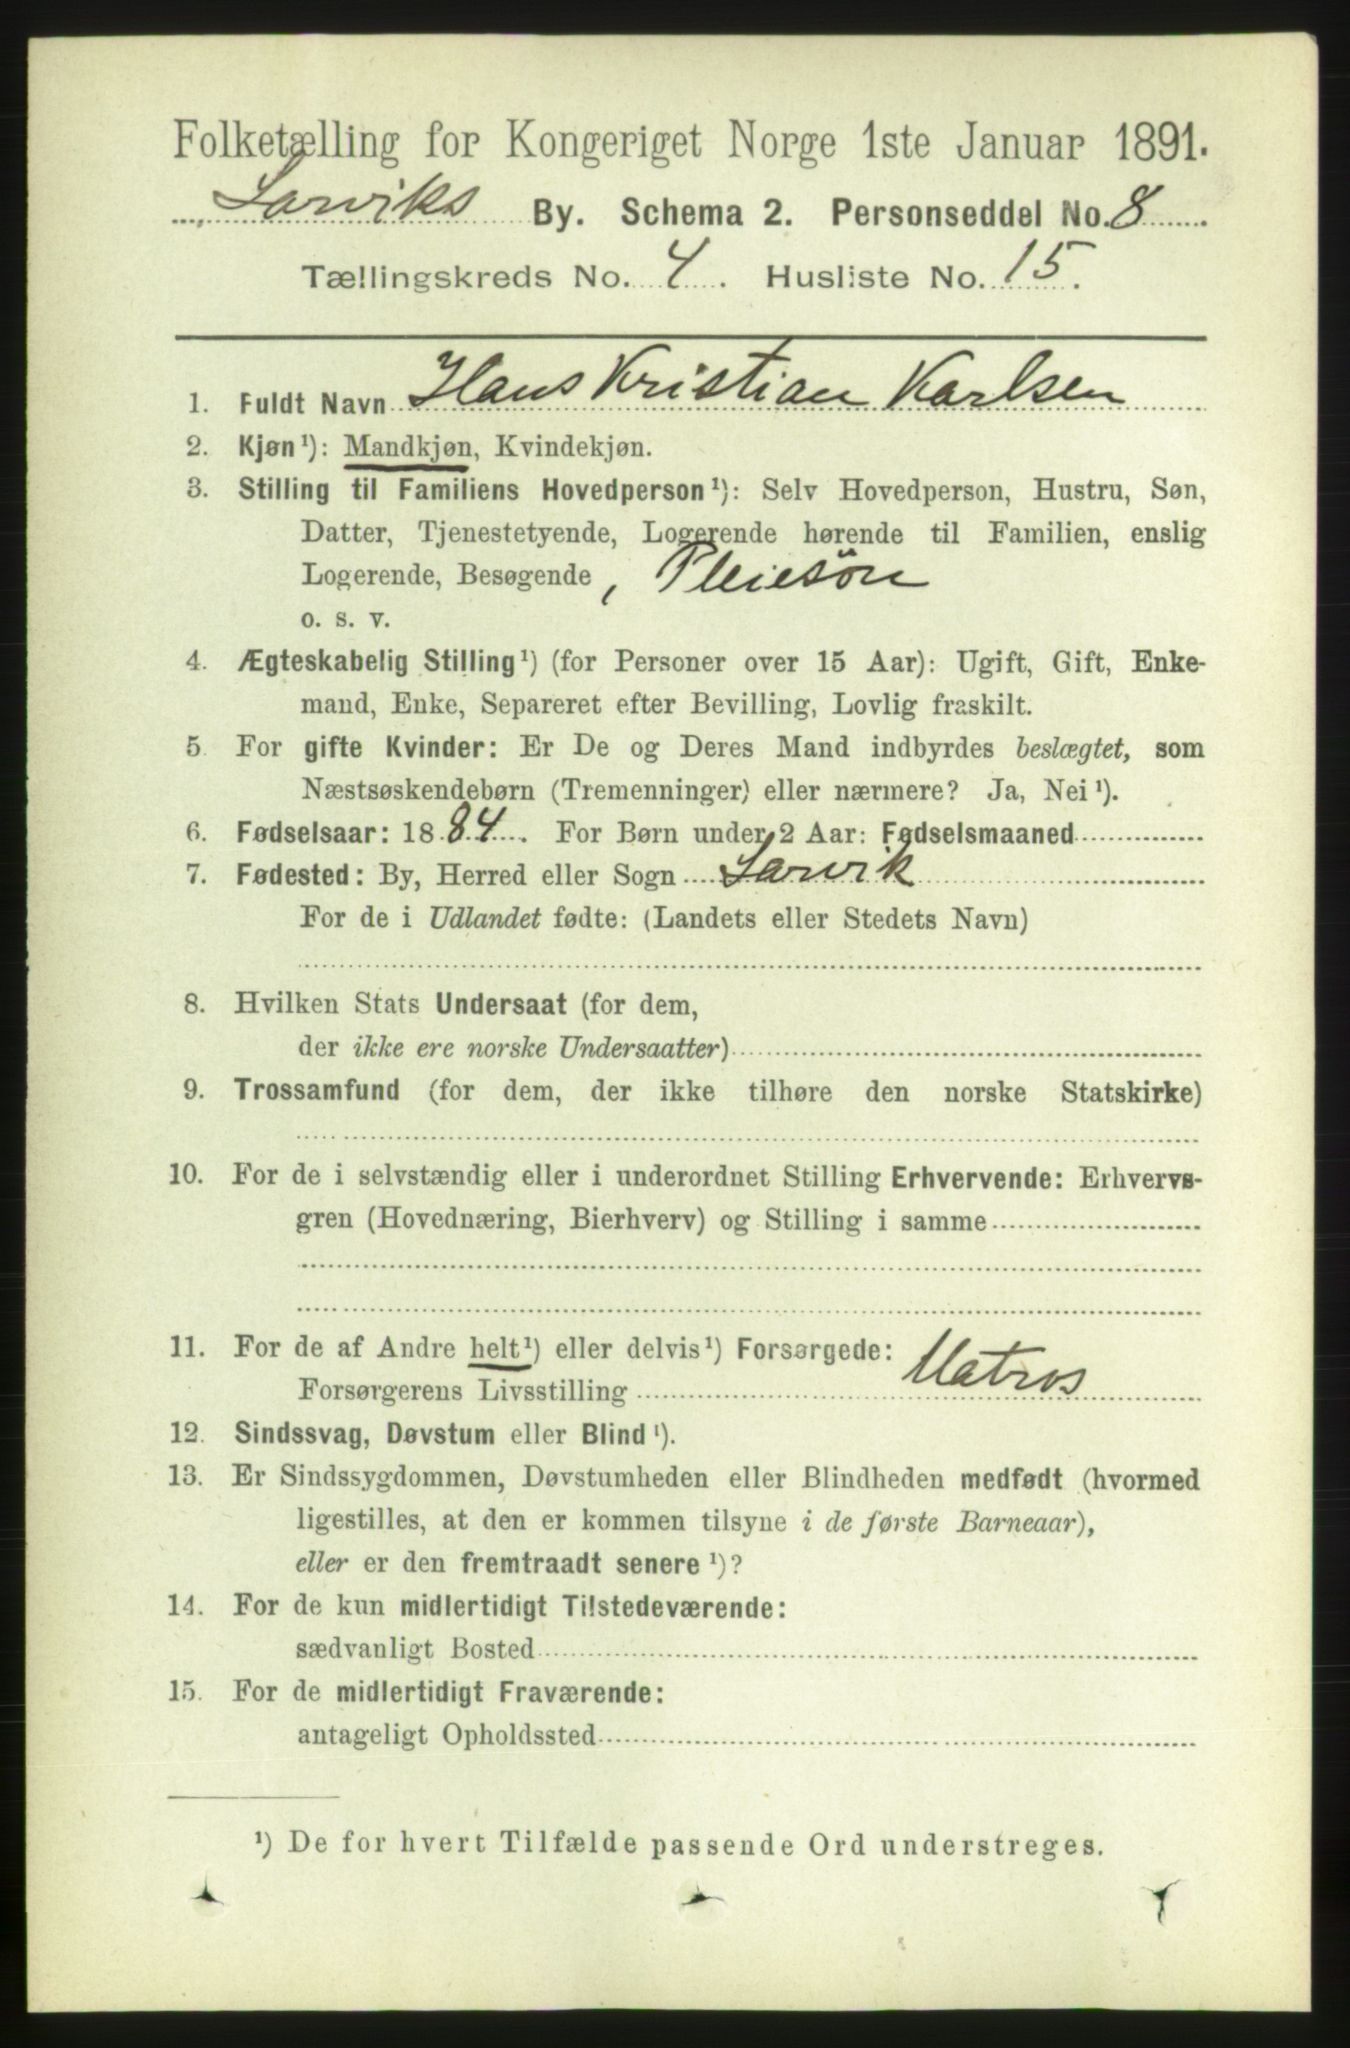 Folketælling for Kongeriget Norge 1ste Januar 1891.
Larviks By. Schema 2. Personseddel No. 8
Tællingskreds No. 4. Husliste No. 15.
1. Fuldt Navn Hans Kristian Karlsen
2. Kjøn¹): Mandkjøn, Kvindekjøn.
3. Stilling til Familiens Hovedperson¹): Selv Hovedperson, Hustru, Søn,
Datter, Tjenestetyende, Logerende hørende til Familien, enslig
Logerende, Besøgende, Pleiesøn
o. s. v.
4. Ægteskabelig Stilling¹) (for Personer over 15 Aar): Ugift, Gift, Enke-
mand, Enke, Separeret efter Bevilling, Lovlig fraskilt.
5. For gifte Kvinder: Er De og Deres Mand indbyrdes beslægtet, som
Næstsøskendebørn (Tremenninger) eller nærmere? Ja, Nei¹).
6. Fødselsaar: 1884. For Børn under 2 Aar: Fødselsmaaned
7. Fødested: By, Herred eller Sogn Larvik
For de i Udlandet fødte: (Landets eller Stedets Navn)
8. Hvilken Stats Undersaat (for dem,
der ikke ere norske Undersaatter)
9. Trossamfund (for dem, der ikke tilhøre den norske Statskirke)
10. For de i selvstændig eller i underordnet Stilling Erhvervende: Erhvervs-
gren (Hovednæring, Bierhverv) og Stilling i samme
11. For de af Andre helt¹) eller delvis¹) Forsørgede:
Forsørgerens Livsstilling Matros
12. Sindssvag, Døvstum eller Blind¹).
13. Er Sindssygdommen, Døvstumheden eller Blindheden medfødt (hvormed
ligestilles, at den er kommen tilsyne i de første Barneaar),
eller er den fremtraadt senere¹)?
14. For de kun midlertidigt Tilstedeværende:
sædvanligt Bosted
15. For de midlertidigt Fraværende:
antageligt Opholdssted
¹) De for hvert Tilfælde passende Ord understreges.